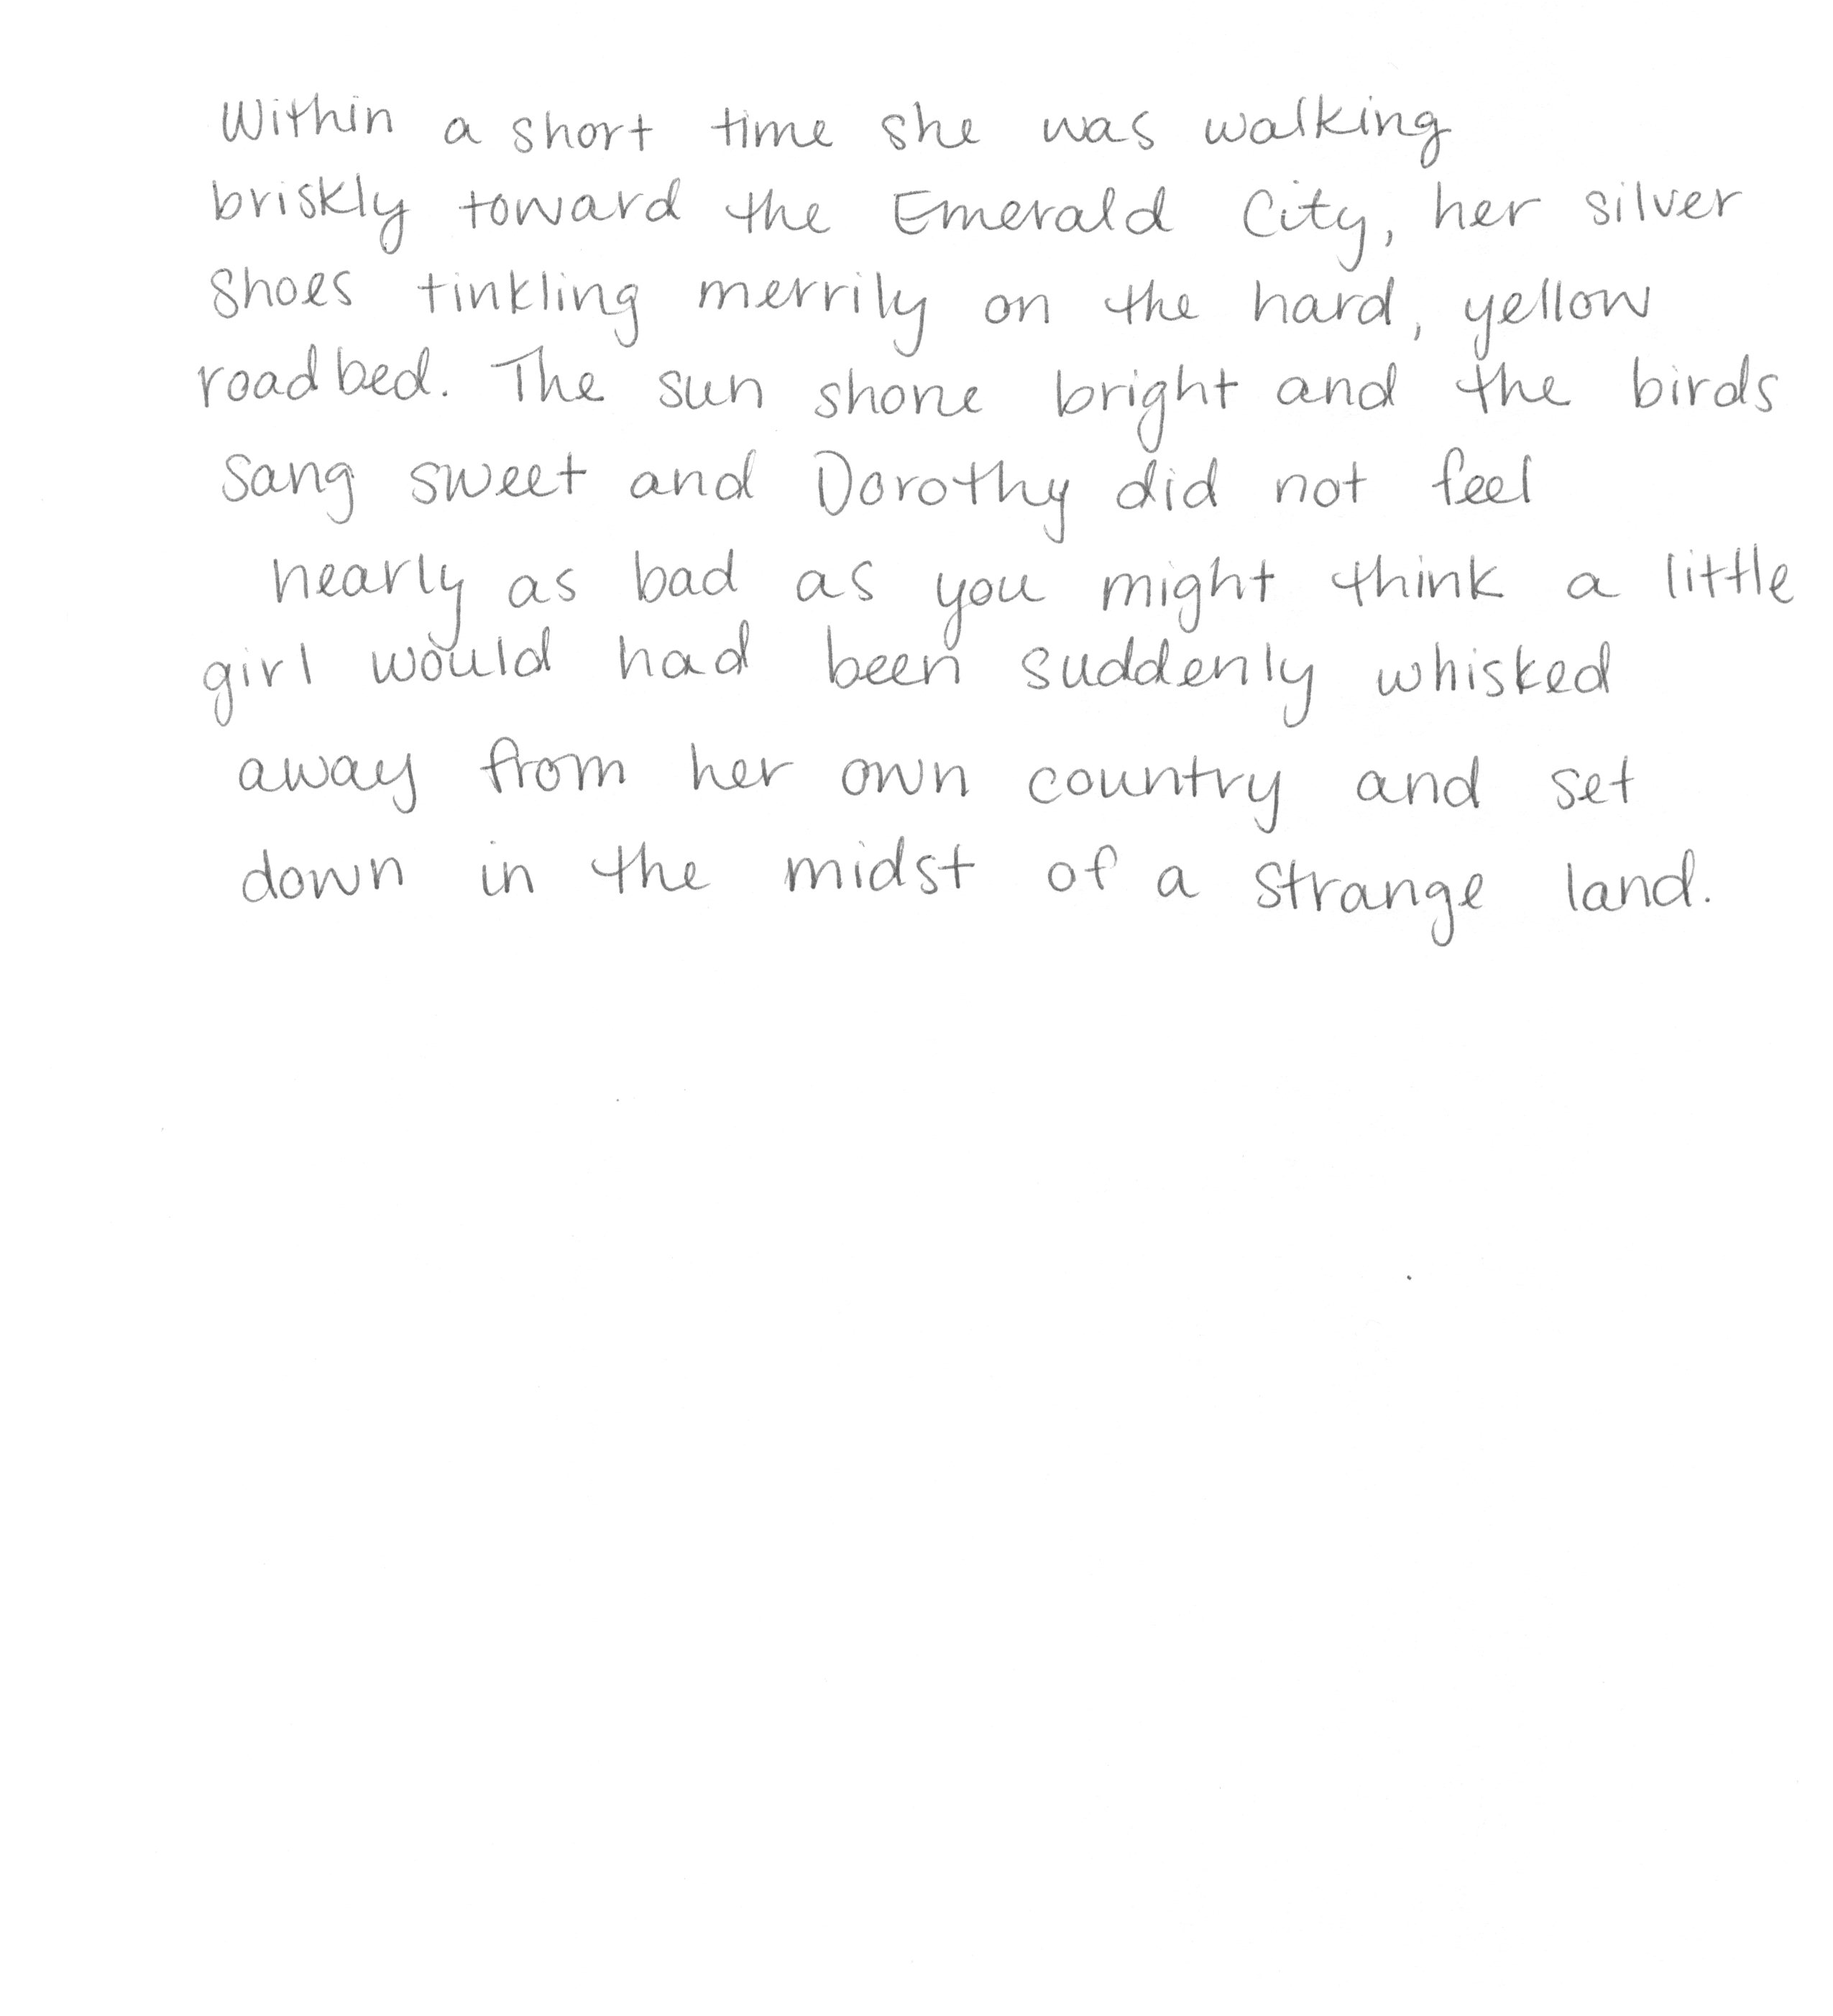 Within a short time she was walking
briskly toward the Emerald City, her silver
shoes tinkling merrily on the hard, yellow
roadbed. The sun shone bright and the birds
sang sweet and Dorothy did not feel
nearly as bad as you might think a little
girl would had been suddenly whisked
away from her own country and set
down in the midst of a strange land.